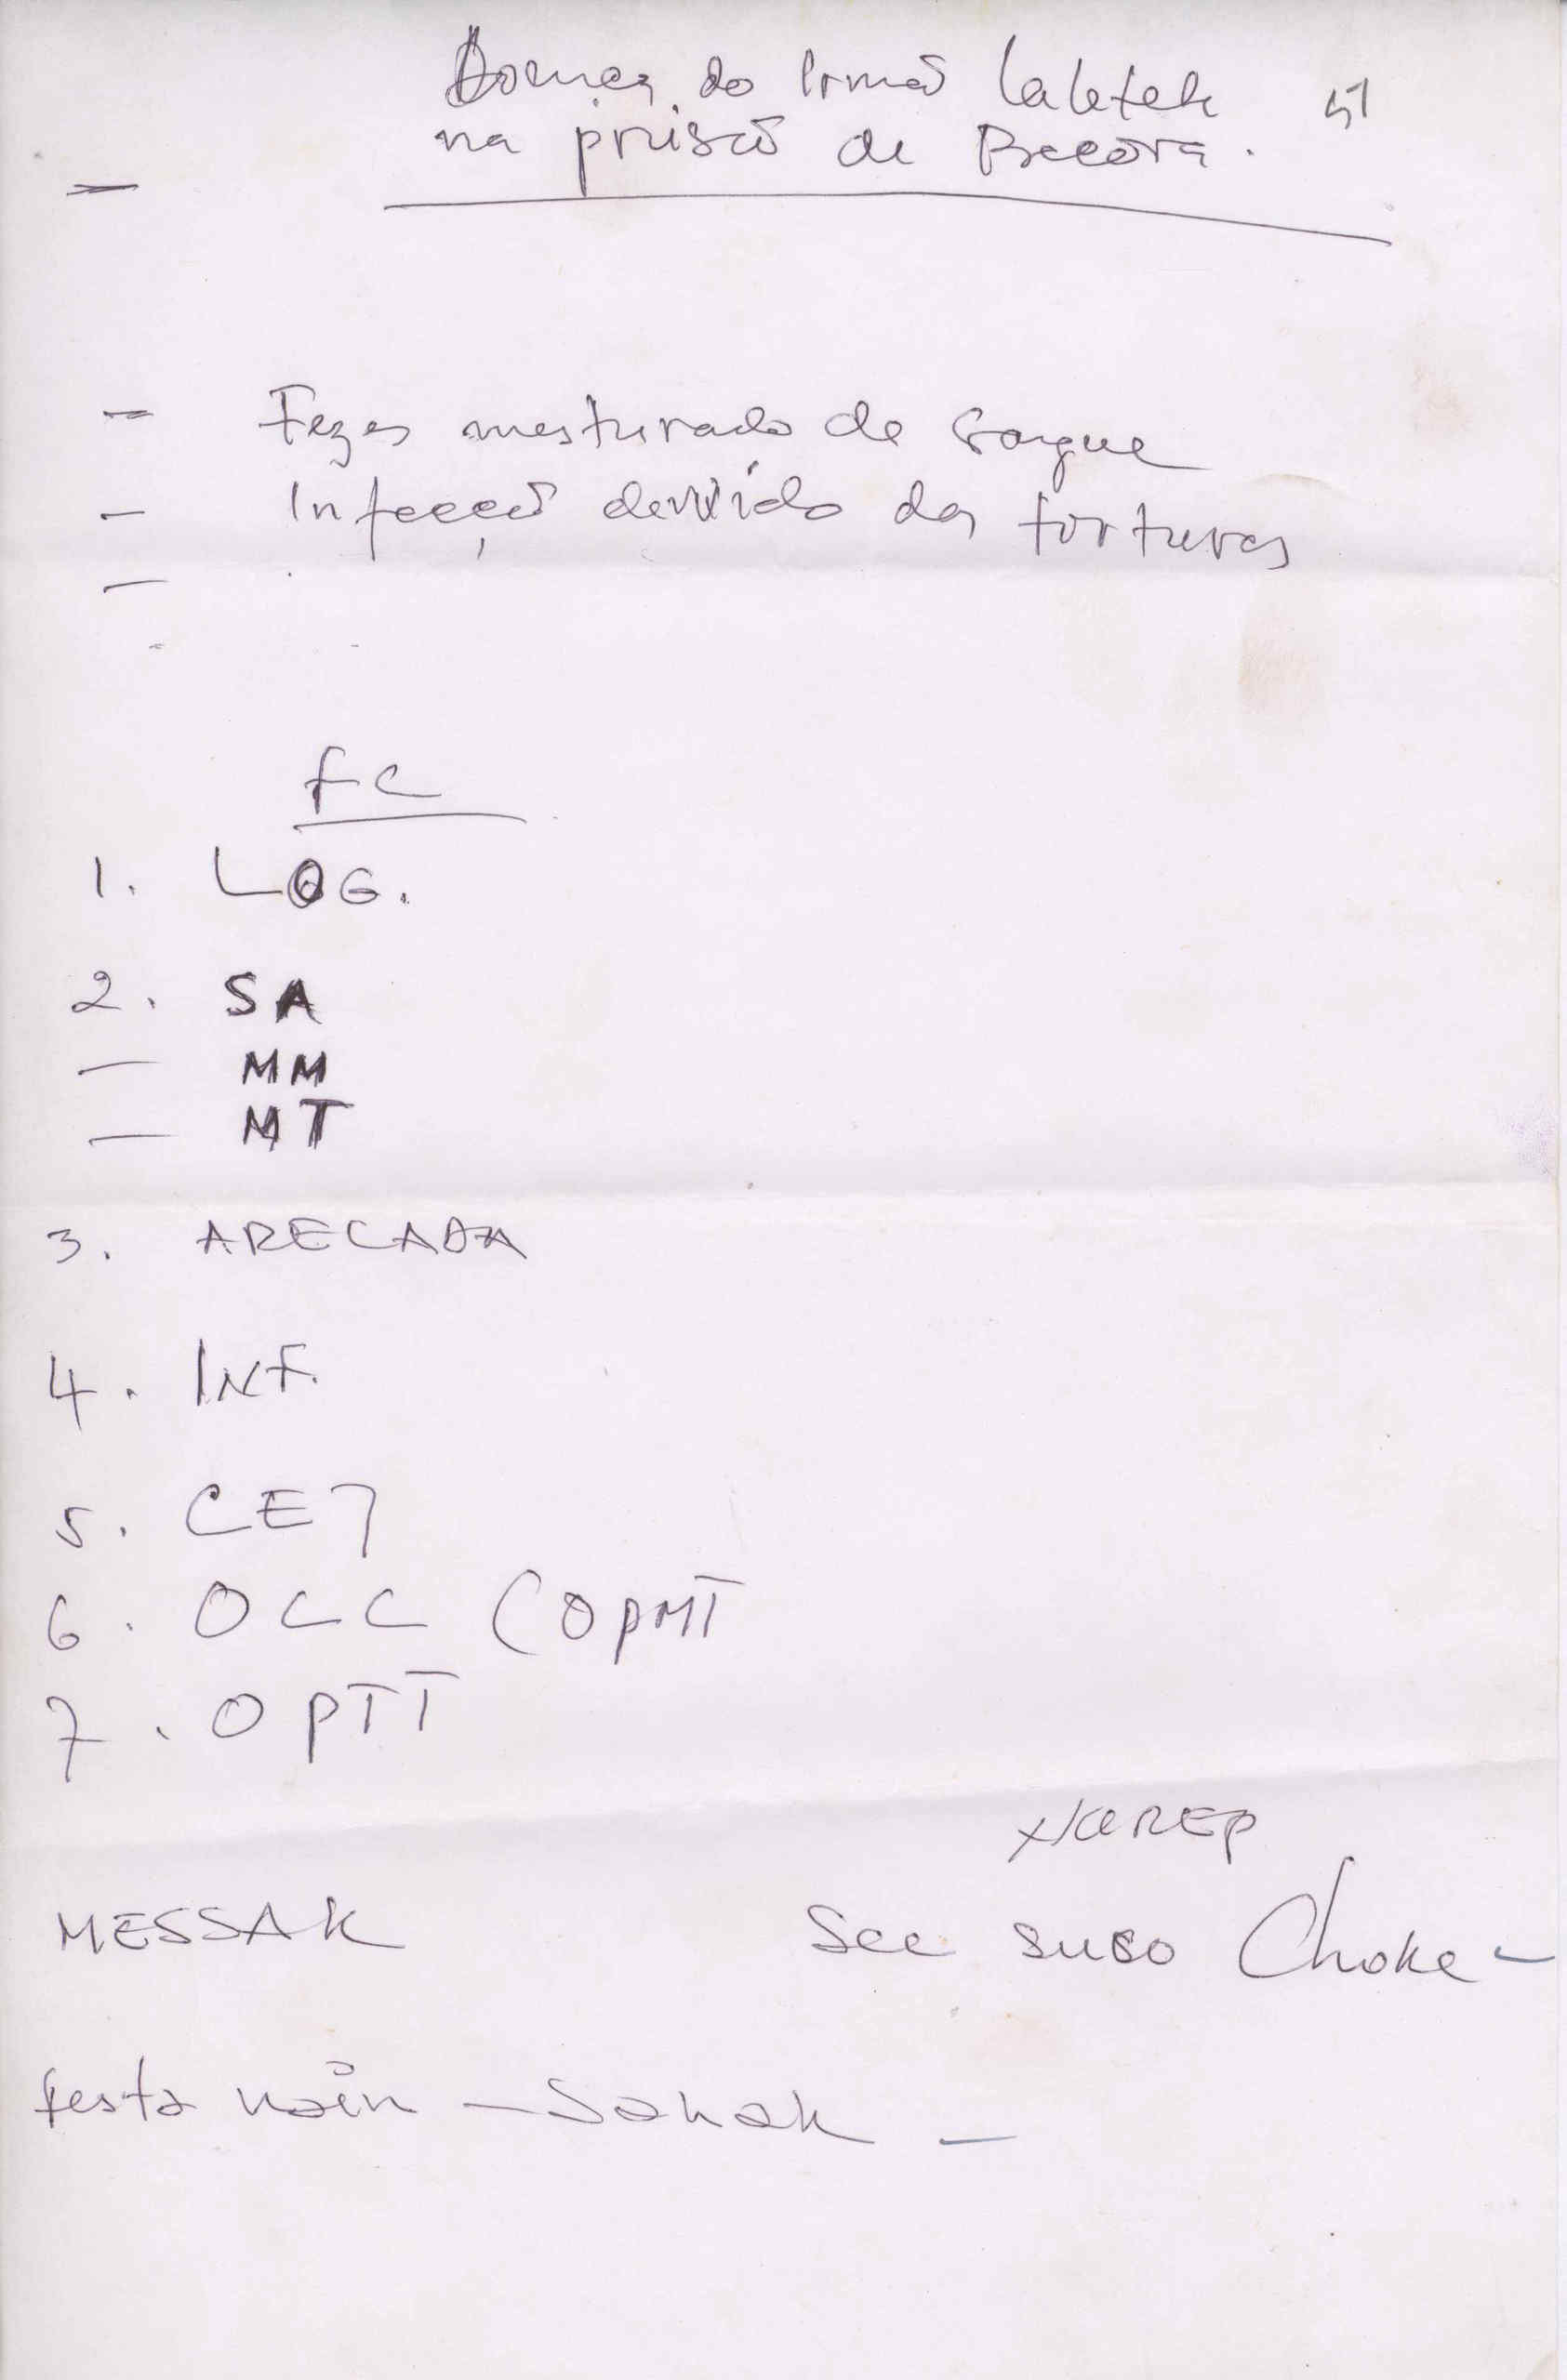 do Irmão Laletek 51
na prisão de Becora.
– Fezes mesturado de Sangue
– Infecção devido das torturas
–
FC
1. LOG.
2. SA
– MM
– MT
3. ARECADA
4. INF.
5. CE7
6. OCC (OPMT
7. OPTT
MESSAK
See suco Choke –
festa nain – Sahak –